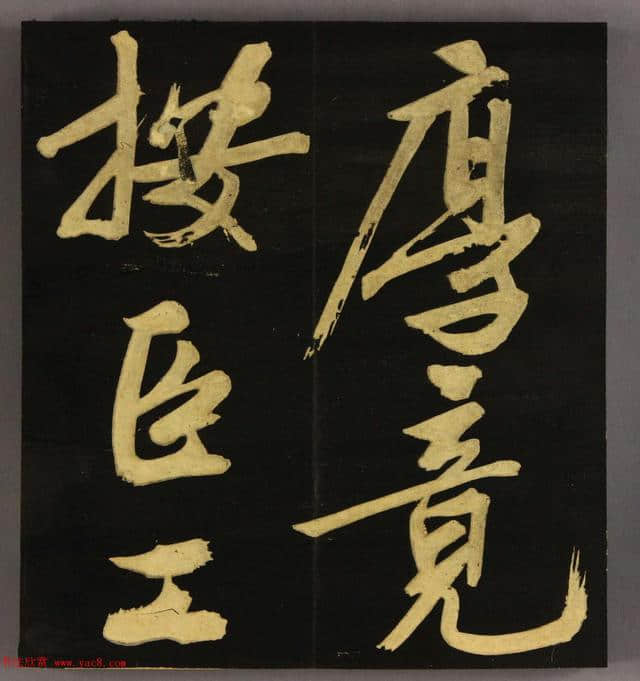 厚竟
按臣工
书法欣赏 www.yac8.com